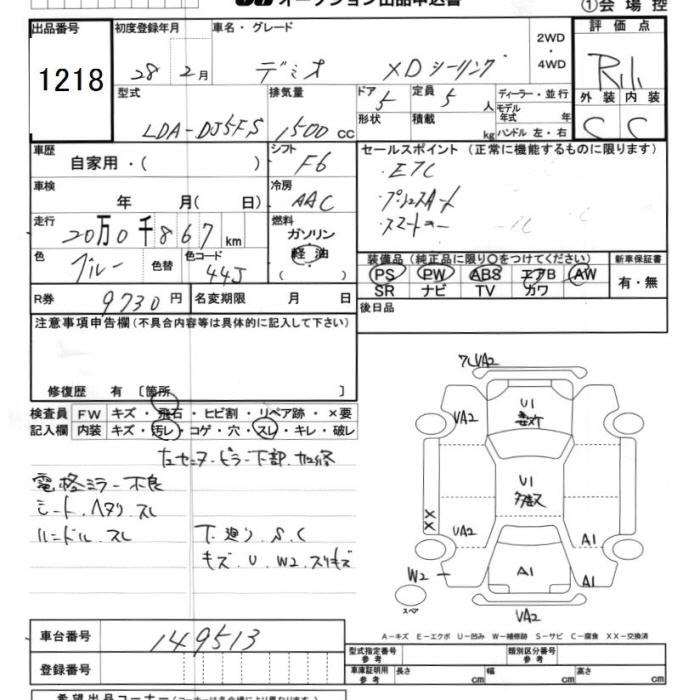 オークション出品申込書
①会場控
出品番号 初度登録年月 車名・グレード 評価点
1218
28年2月 デミオ XDツーリング 2WD・4WD
型式 排気量 ドア 定員 ディーラー・並行 外装 内装
LDA-DJ5FS 1500cc 5 5人 モデル年式 年 C C
形状 積載 kg ハンドル 左・右
車歴 シフト セールスポイント (正常に機能するものに限ります)
自家用・( ) F6 ・ETC
車検 冷房
年 月( 日) AAC
走行 燃料
20万0千867km ガソリン
色 色替 色コード 軽油
ブルー 44J ( )
装備品(純正品に限り○をつけてください) 新車保証書
PS PW ABS エアB AW 有・無
SR ナビ TV カワ
R券 9730円 名変期限 月 日 後日品
注意事項申告欄(不具合内容等は具体的に記入して下さい)
修復歴 有〔箇所 〕
検査員 FW キズ・飛石・ヒビ割・リペア跡・×要
記入欄 内装 キズ・汚レ・コゲ・穴・スレ・キレ・破レ
左センターピラー下部 加修
電格ミラー不良
シート ヘタリ スレ
ハンドル スレ
下廻り S.C
キズ U W2 スリキズ
VA2
U1
VA2
U1
XX
VA2 A1
W2 A1 A1
スペア
VA2
A-キズ E-エクボ U-凹み W-補修跡 S-サビ C-腐食 XX-交換済
車台番号 149513
型式指定番号 参考 類別区分番号 参考
登録番号
車庫証明用 参考 長さ cm 幅 cm 高さ cm
希望出品コーナー